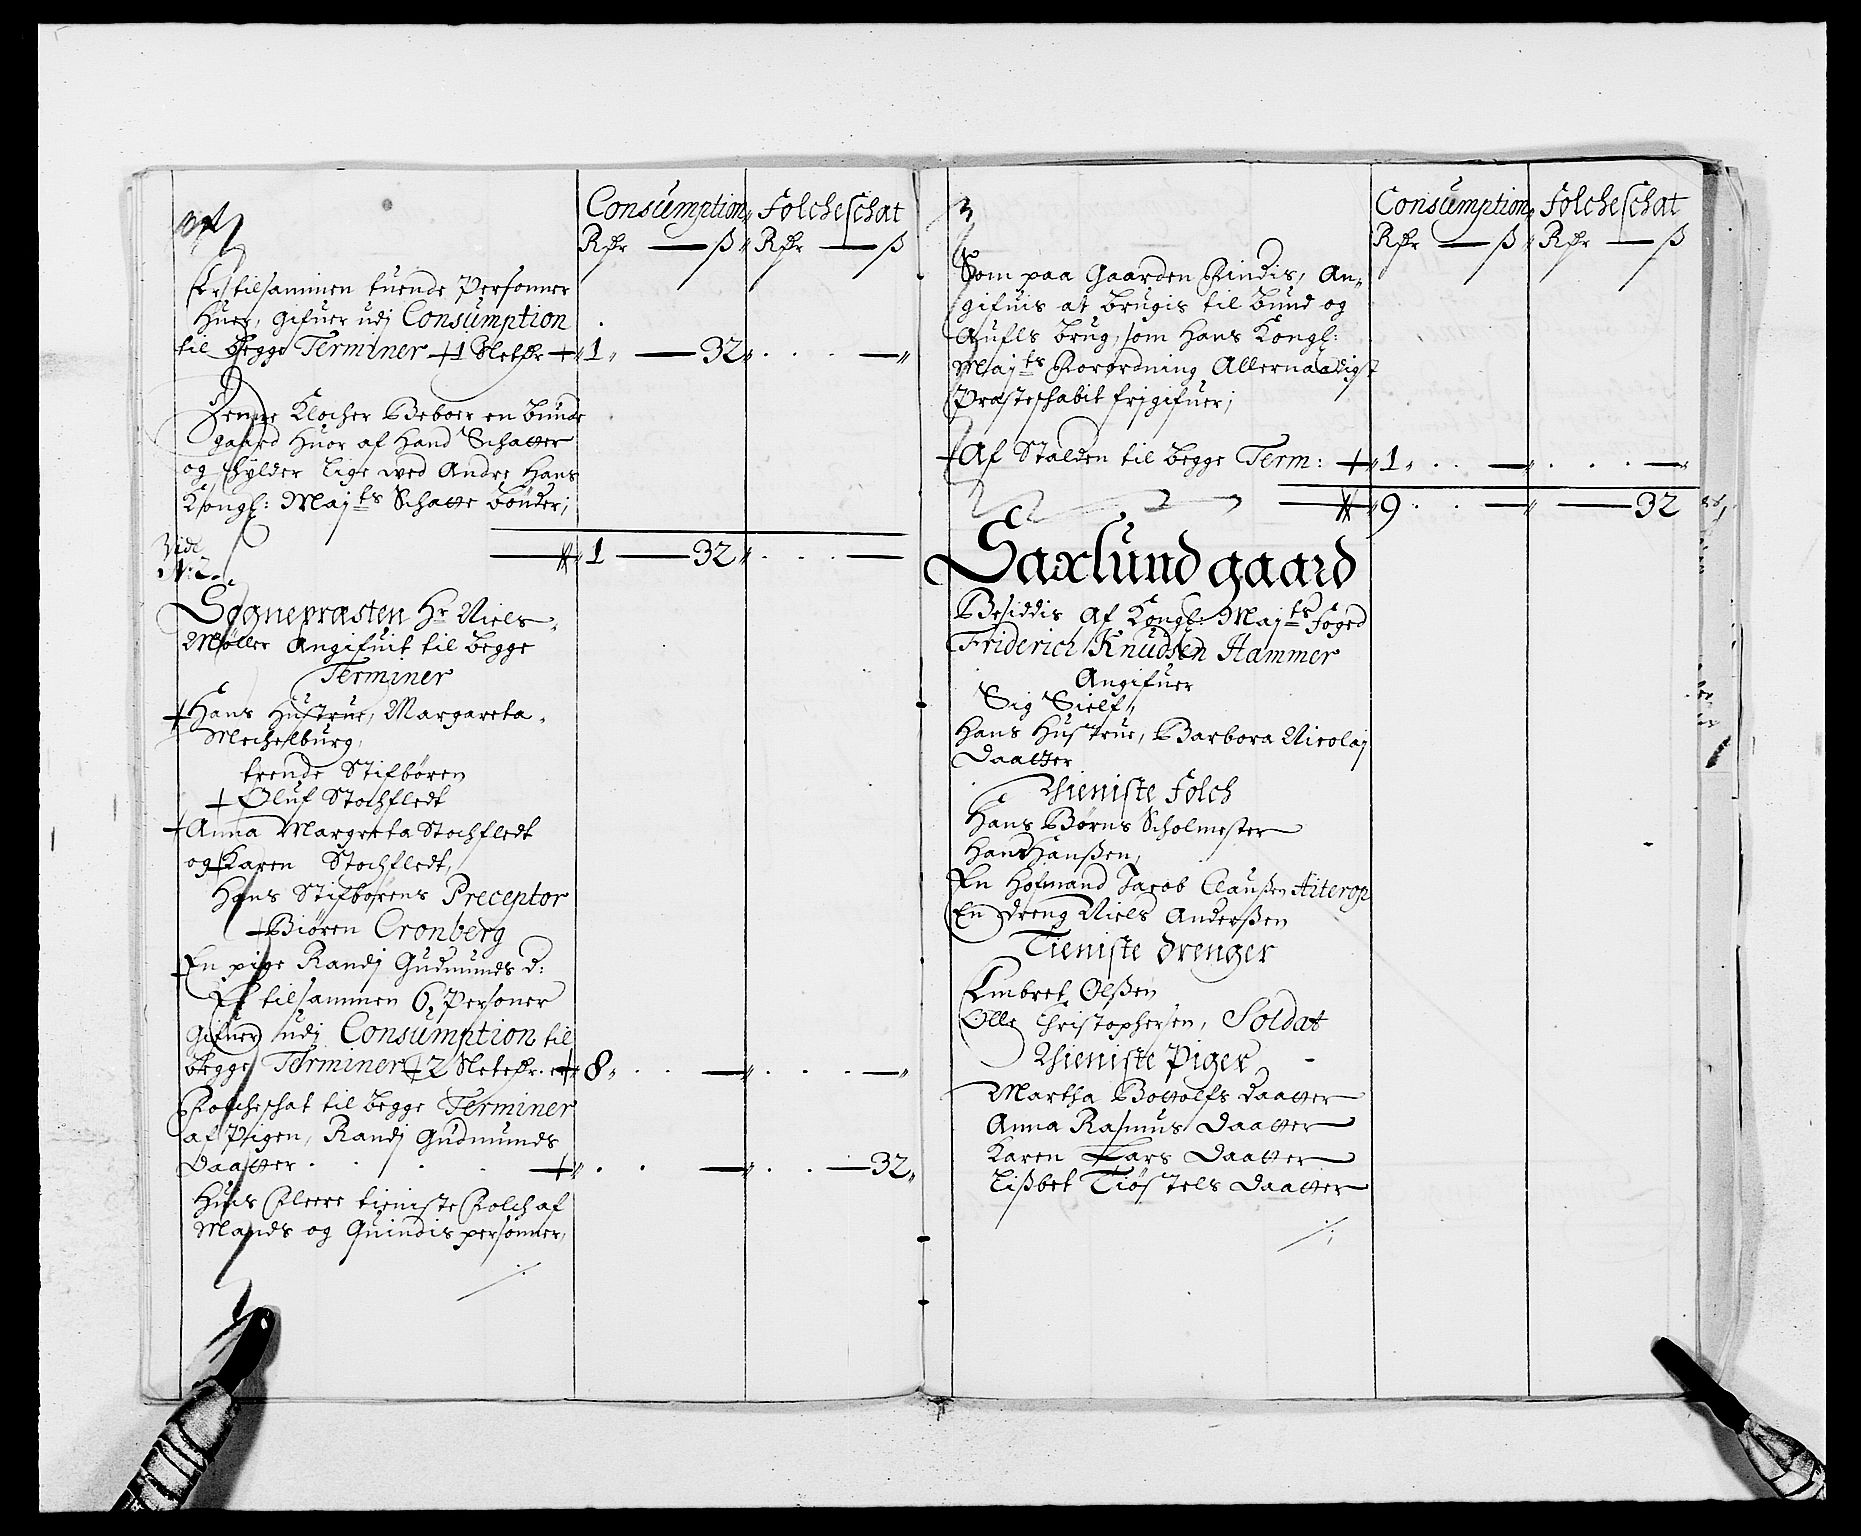 Consumption Folcheschat
Rdr ß Rdr ß
Er tilsammen tuende Personner
Huer, gifuer udj Consumption
til begge Terminer 1 Sletdr 1 — 32 . . . —
Denne Klocher Beboer en bunde
gaard huor af hand Schatter
og schylder lige wed Andre Hans
Kongl: Majts Schatte bønder;
1 — 32 . . . —
Vide
N: 2
Sognepræsten Hr Niels
Møller Angifuit til begge
Terminer
Hans Hustrue, Margareta
Mechelburg,
trende Stifbøren
Oluf Stochfledt
Anna Margreta Stochfledt
og Karen Stochfledt,
Hans Stifbørens Preceptor
Biøren Cronberg
En pige Randj Gudmunds d:
Er tilsammen 6, Personer
gifuer udj Consumption til
begge Terminer 2 Sletedr. er 8 . . — . . . —
Folcheschat til begge Terminer
af Pigen, Randj Gudmunds
Daatter . . . . . — . . — 32
Huis Fleere tieniste Folch af
Mands og Quindis personner,
./.
3
Consumption Folcheschat
Rdr ß Rdr ß
Som paa Gaarden Findis, An-
gifuis at brugis til bund og
Aufls brug, som Hans Kongl:
Majts Forordning Allernaadigst
Præsteschabit frj gifuer;
Af Stalden til begge Term: 1 . . — . . . —
9 . . — — 32
Saxlund gaard
Besiddis Af Kongl: Majts Foged
Friderich Knudsen Hammer
Angifuer
Sig Sielf,
Hans Hustrue, Barbora Nicolaj
Daatter
Thieniste Folch
Hans Børns Scholmester
Hans Hanßen,
En Hofmand Jacob Claußen Aiterop
En dreng Niels Anderßen
Tieniste drenger
Embret Olßen
Olle Christophersen, Soldat
Thieniste Piger
Martha Bottolfs Daatter
Anna Rasmus Daatter
Karen Lars Daatter
Lißbet Tiøstels Daatter
./.